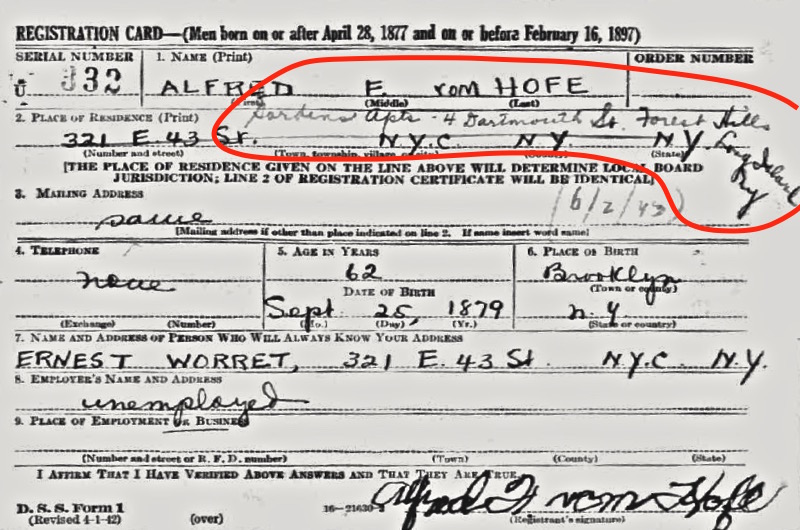 REGISTRATION CARD—(Men born on or after April 28, 1877 and on or before February 16, 1897)
SERIAL NUMBER 1. NAME (Print) ORDER NUMBER
U 332 ALFRED F. vom HOFE
(First) (Middle) (Last)
Gardens Apts - 4 Dartmouth St. Forest Hills
2. PLACE OF RESIDENCE (Print)
321 E. 43 St. N.Y.C. N.Y. N.Y. Long Island
NY
(Number and street) (Town, township, village, or city) (County) (State)
[THE PLACE OF RESIDENCE GIVEN ON THE LINE ABOVE WILL DETERMINE LOCAL BOARD
JURISDICTION; LINE 2 OF REGISTRATION CERTIFICATE WILL BE IDENTICAL]
3. MAILING ADDRESS (6/2/43)
same
[Mailing address if other than place indicated on line 2. If same insert word same]
4. TELEPHONE 5. AGE IN YEARS 6. PLACE OF BIRTH
none 62 Brooklyn
DATE OF BIRTH (Town or county)
Sept. 25, 1879 N.Y.
(Exchange) (Number) (Mo.) (Day) (Yr.) (State or country)
7. NAME AND ADDRESS OF PERSON WHO WILL ALWAYS KNOW YOUR ADDRESS
ERNEST WORRET, 321 E. 43 St. N.Y.C. N.Y.
8. EMPLOYER'S NAME AND ADDRESS
unemployed
9. PLACE OF EMPLOYMENT OR BUSINESS
(Number and street or R. F. D. number) (Town) (County) (State)
I AFFIRM THAT I HAVE VERIFIED ABOVE ANSWERS AND THAT THEY ARE TRUE.
D. S. S. Form 1 Alfred F vom Hofe
(Revised 4-1-42) (over) 16-21630-2 (Registrant's signature)